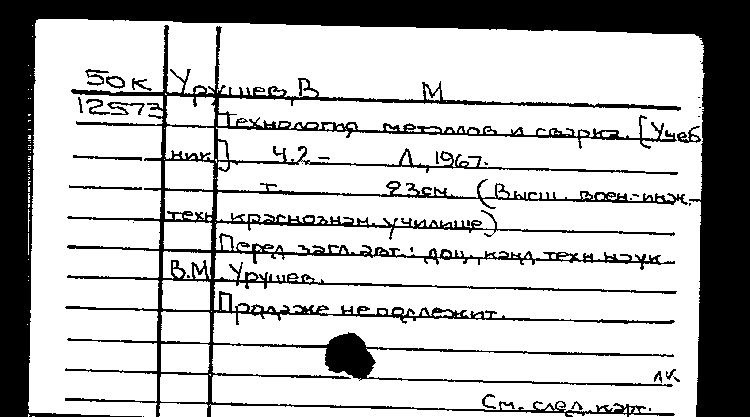 50К Урушев, В М
12573
Технология металлов и сварка. [Учеб
ник]. Ч.2 – Л., 1967.
т. 23см. (Высш. воен.-инж.-
техн. краснознам. училище)
Перед загл. авт.: доц., канд. техн. наук
В.М. Урушев.
Продаже не подлежит.
лк
См. след. карт.